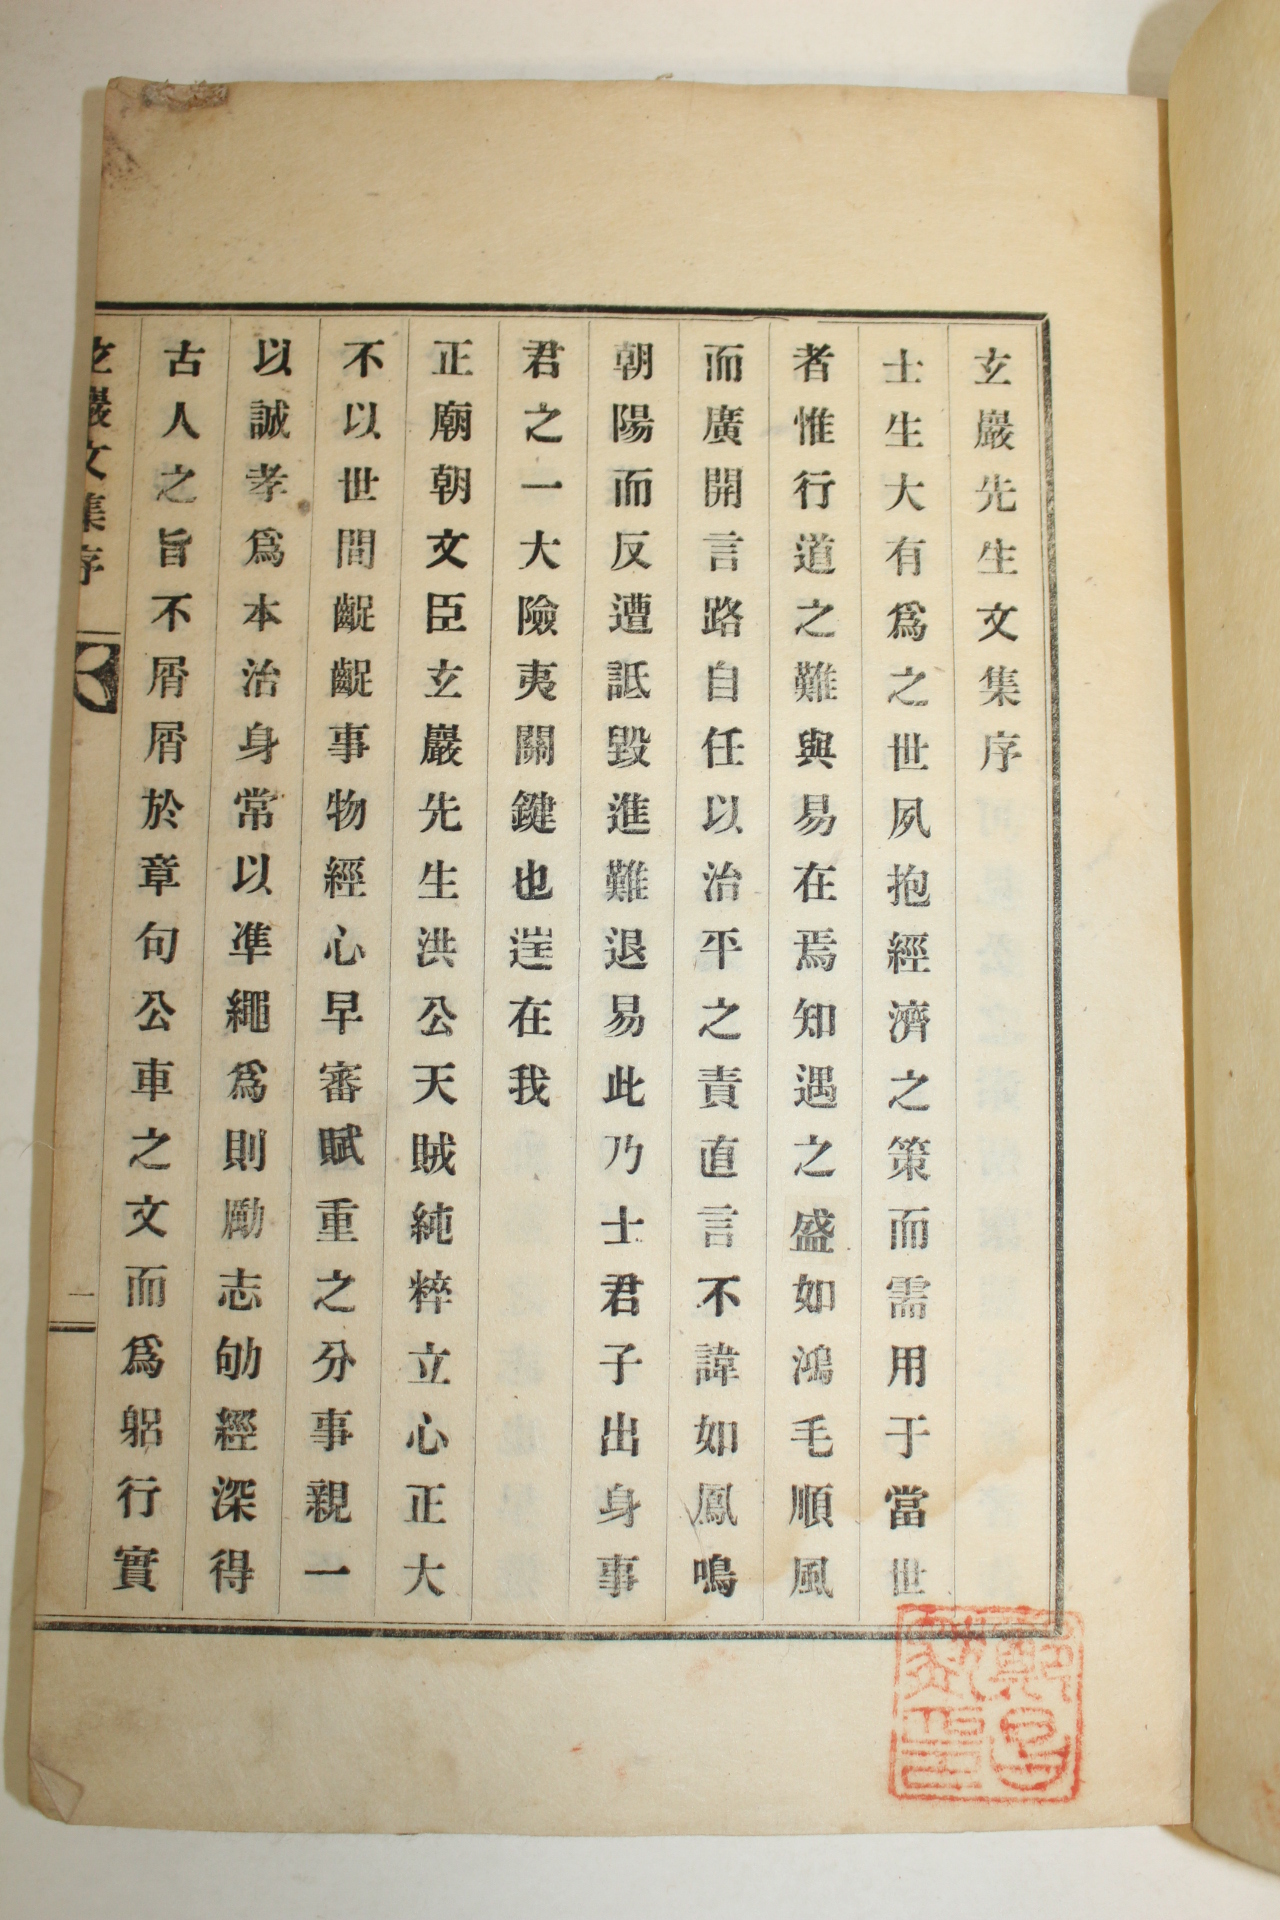 玄巖先生文集序
士生大有爲之世夙抱經濟之策而需用于當世
者惟行道之難與易在焉知遇之盛如鴻毛順風
而廣開言路自任以治平之責直言不諱如鳳鳴
朝陽而反遭詆毀進難退易此乃士君子出身事
君之一大險夷關鍵也逞在我
正廟朝文臣玄巖先生洪公天賊純粹立心正大
不以世間齪齪事物經心早審賦重之分事親一
以誠孝爲本治身常以準繩爲則勵志劬經深得
古人之旨不屑屑於章句公車之文而爲躬行實
玄巖文集序
一